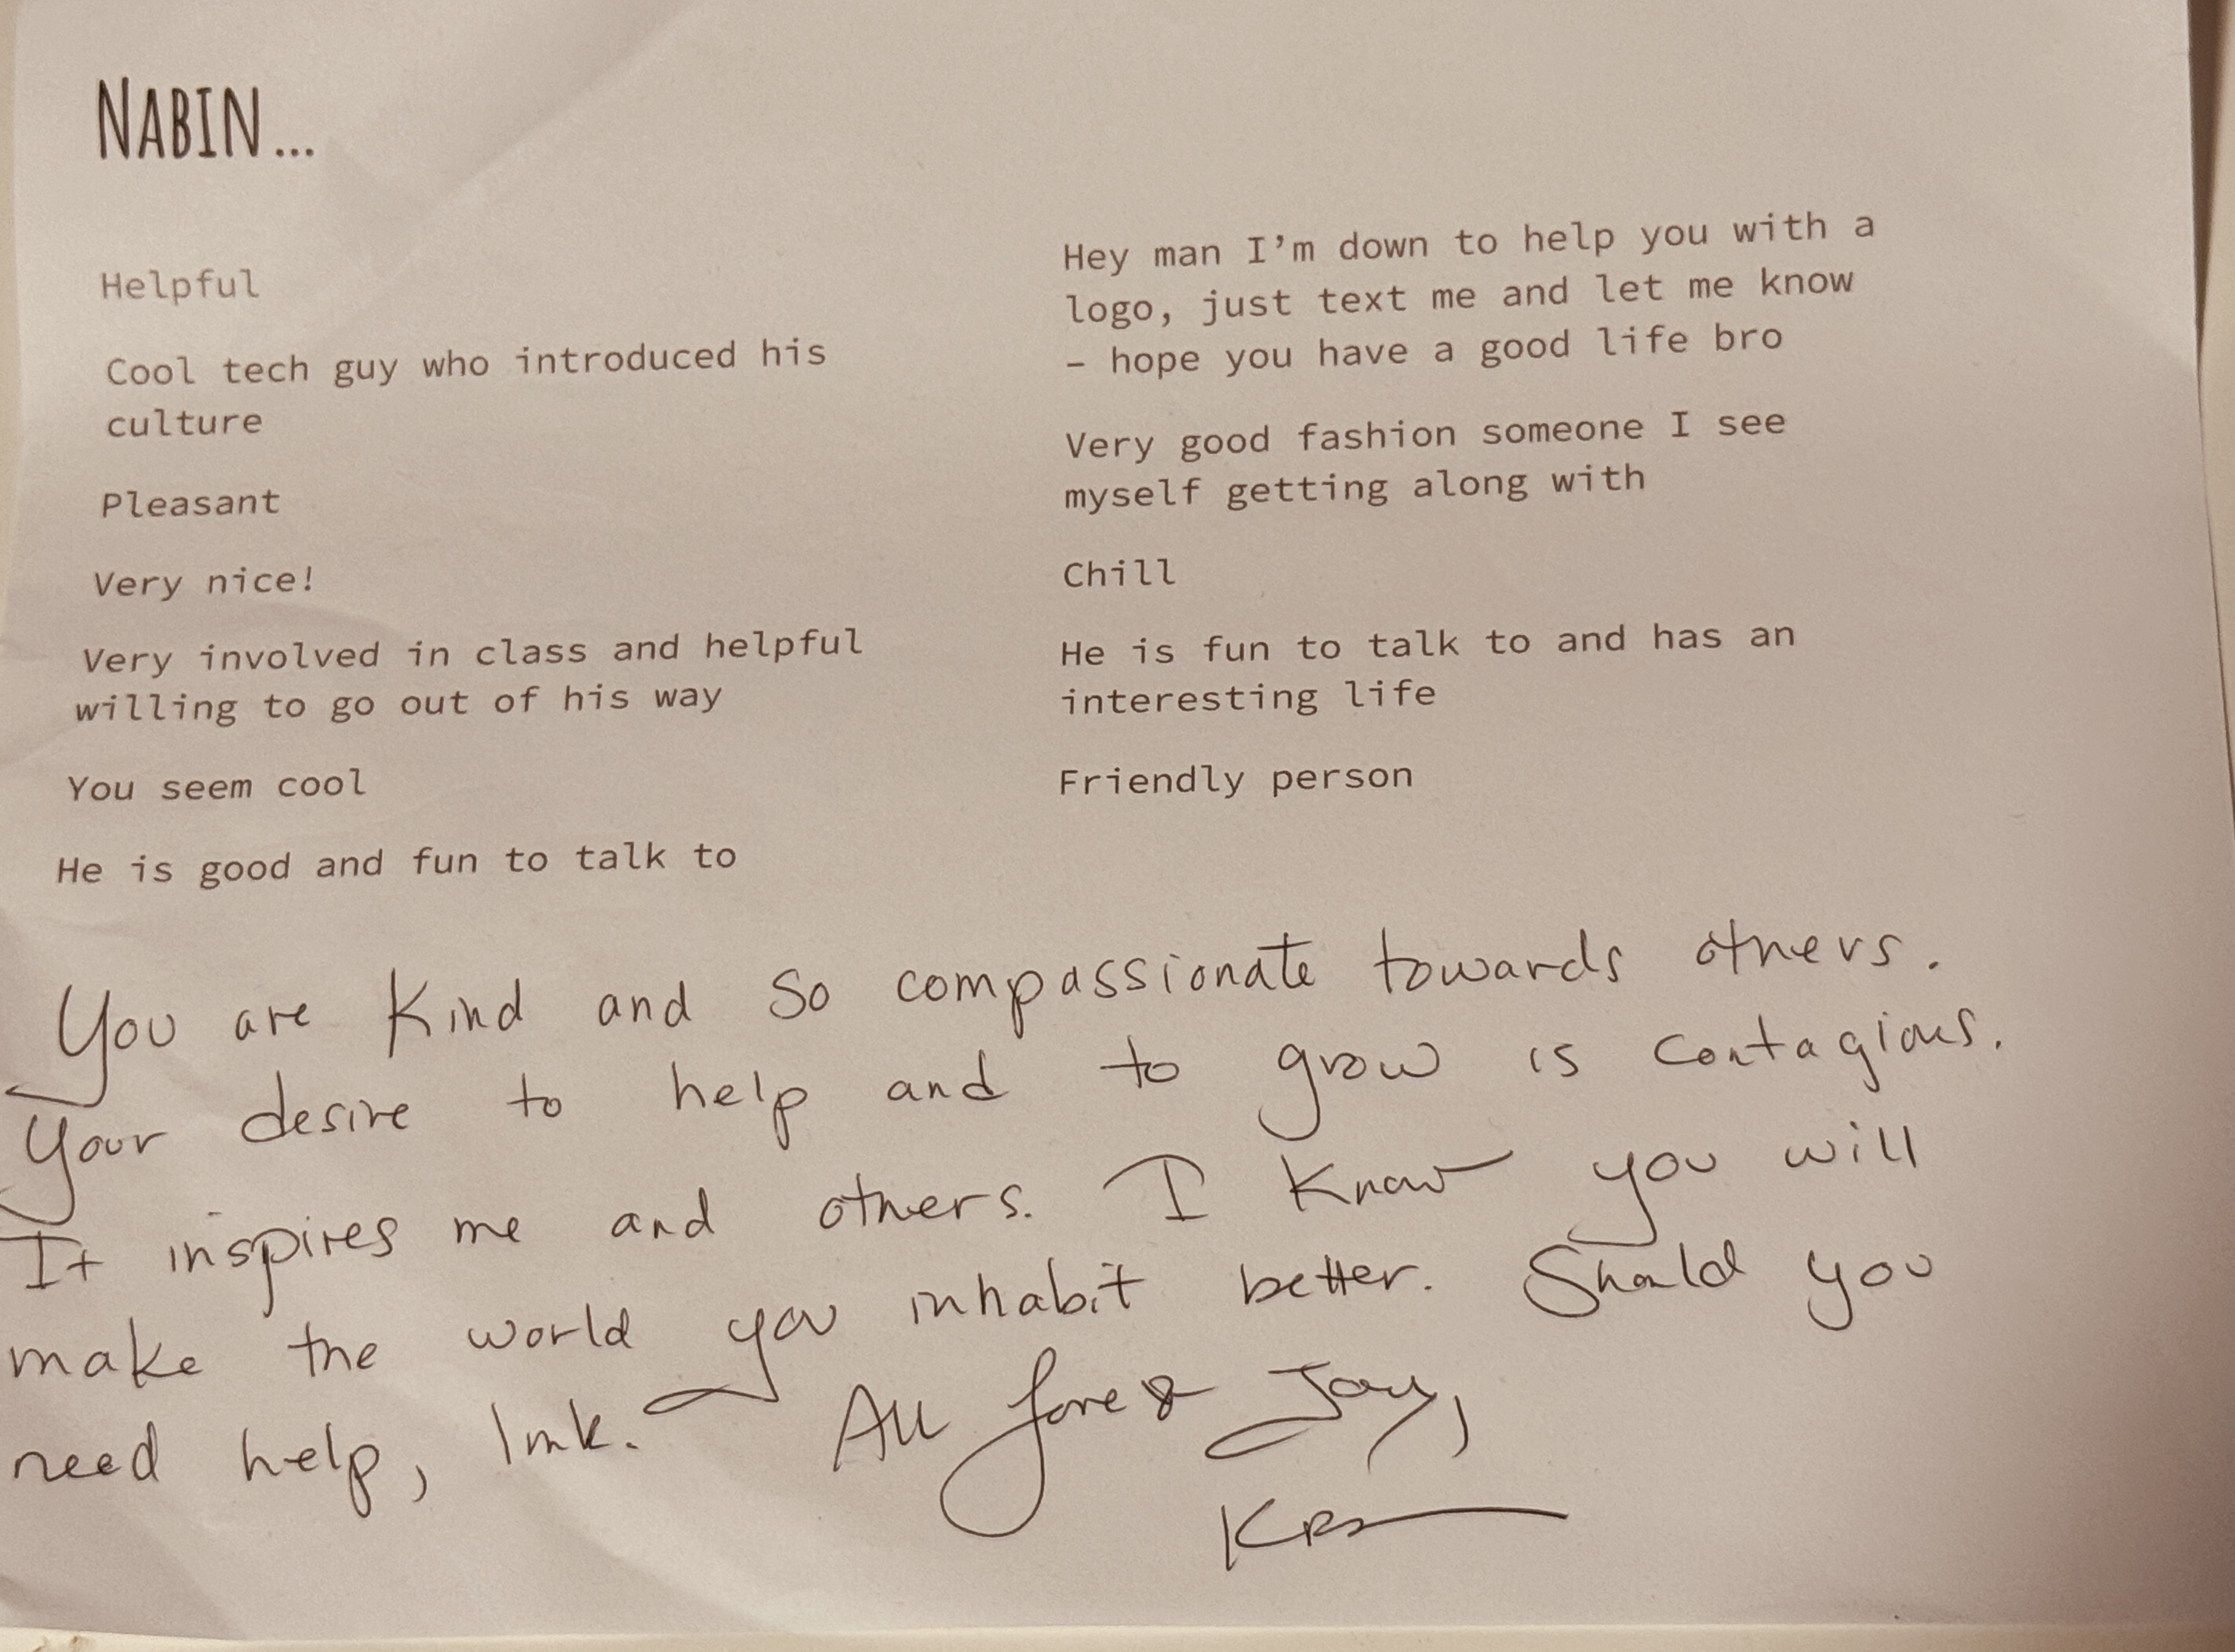 NABIN...
Helpful
Cool tech guy who introduced his
culture
Pleasant
Very nice!
Very involved in class and helpful
willing to go out of his way
You seem cool
He is good and fun to talk to
Hey man I’m down to help you with a
logo, just text me and let me know
– hope you have a good life bro
Very good fashion someone I see
myself getting along with
Chill
He is fun to talk to and has an
interesting life
Friendly person
You are Kind and so compassionate towards others.
Your desire to help and to grow is contagious.
It inspires me and others. I know you will
make the world you inhabit better. Should you
need help, lmk. All love & Joy,